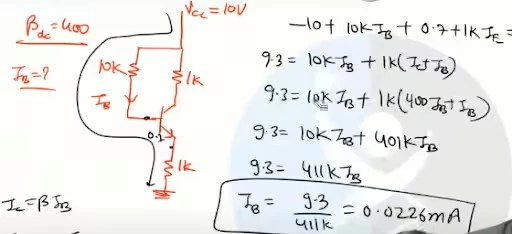 β_dc = 400
I_B = ?
V_CC = 10V
10K
1K
I_B
0.7
1K
I_C = β I_B
-10 + 10K I_B + 0.7 + 1K I_E =
9.3 = 10K I_B + 1K (I_C + I_B)
9.3 = 10K I_B + 1K (400 I_B + I_B)
9.3 = 10K I_B + 401K I_B
9.3 = 411K I_B
I_B = 9.3 / 411K = 0.0226 mA